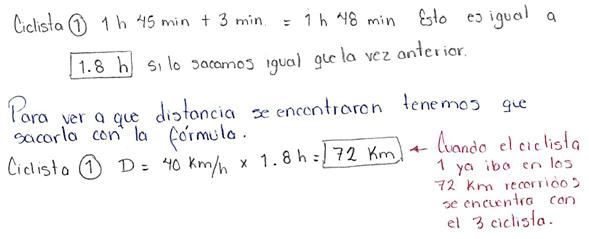 Ciclista ① 1 h 45 min + 3 min = 1 h 48 min Esto es igual a
1.8 h si lo sacamos igual que la vez anterior.
Para ver a que distancia se encontraron tenemos que
sacarla con la fórmula.
Ciclista ① D = 40 Km/h × 1.8 h = 72 Km ← Cuando el ciclista
1 ya iba en los
72 Km recorridos
se encuentra con
el 3 ciclista.